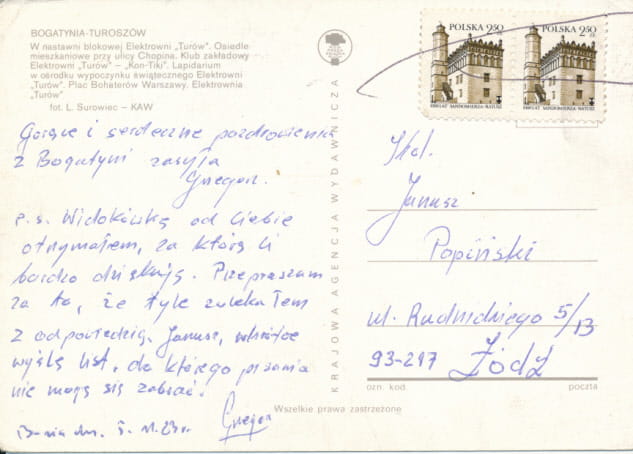 BOGATYNIA-TUROSZÓW
W nastawni blokowej Elektrowni „Turów". Osiedle
mieszkaniowe przy ulicy Chopina. Klub zakładowy
Elektrowni „Turów" – „Kon-Tiki". Lapidarium
w ośrodku wypoczynku świątecznego Elektrowni
„Turów". Plac Bohaterów Warszawy. Elektrownia
„Turów"
fot. L. Surowiec – KAW
Gorące i serdeczne pozdrowienia
z Bogatyni zasyła
Gregor.
P.S. Widokówkę od Ciebie
otrzymałem, za którą Ci
bardzo dziękuję. Przepraszam
za to, że tyle zwlekałem
z odpowiedzią. Janusz, wkrótce
wyślę list, do którego pisania
nie mogę się zabrać.
Gregor
KRAJOWA AGENCJA WYDAWNICZA
Wszelkie prawa zastrzeżone
POLSKA 2,50 zł
800 LAT SANDOMIERZA-RATUSZ
POLSKA 2,50 zł
800 LAT SANDOMIERZA-RATUSZ
Kol.
Janusz
Papiński
ul. Rudnickiego 5/13
93-217 Łódź
ozn. kod poczta